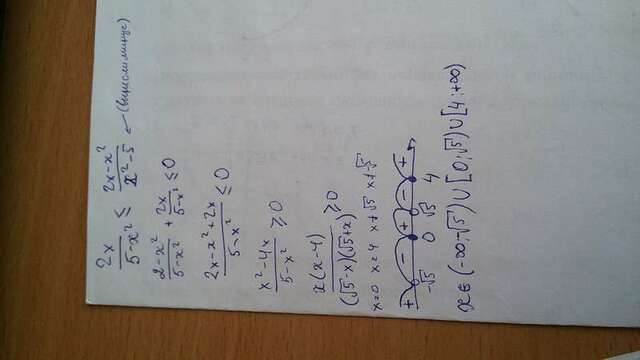 2x/(5-x²) ≤ (2x-x²)/(x²-5) ← (вынесли минус)
(2-x²)/(5-x²) + 2x/(5-x²) ≤ 0
(2x-x²+2x)/(5-x²) ≤ 0
(x²-4x)/(5-x²) ≥ 0
x(x-4)/((√5-x)(√5+x)) ≥ 0
x=0 x=4 x≠√5 x≠-√5
+ - + - +
-√5 0 √5 4
x∈(-∞;-√5)∪[0;√5)∪[4;+∞)